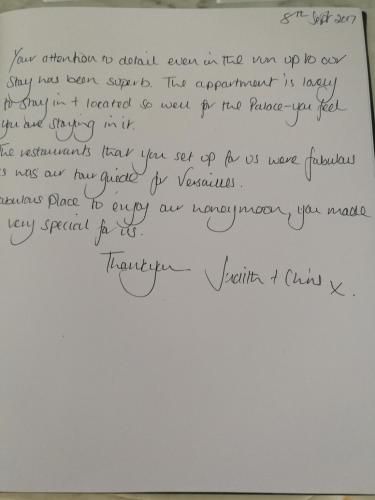 8th Sept 2017
Your attention to detail even in the run up to our
stay has been superb. The appartment is lovely
to stay in + located so well for the Palace - you feel
you are staying in it.
The restaurants that you set up for us were fabulous
as was our tour guide for Versailles.
fabulous place to enjoy our honeymoon, you made
very special for us.
Thankyou Judith + Chris x.